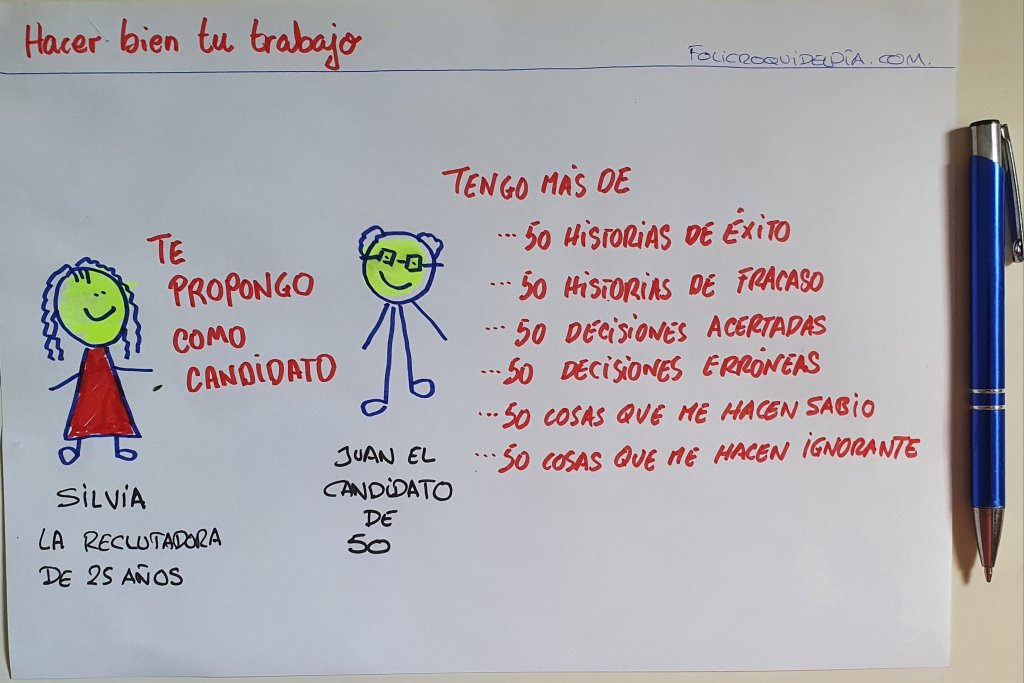 Hacer bien tu trabajo
FOLICROQUIDELDÍA.COM.
TE
PROPONGO
COMO
CANDIDATO
TENGO MÁS DE
...50 HISTORIAS DE ÉXITO
...50 HISTORIAS DE FRACASO
...50 DECISIONES ACERTADAS
...50 DECISIONES ERRÓNEAS
...50 COSAS QUE ME HACEN SABIO
...50 COSAS QUE ME HACEN IGNORANTE
SILVIA
LA RECLUTADORA
DE 25 AÑOS
JUAN EL
CANDIDATO
DE
50